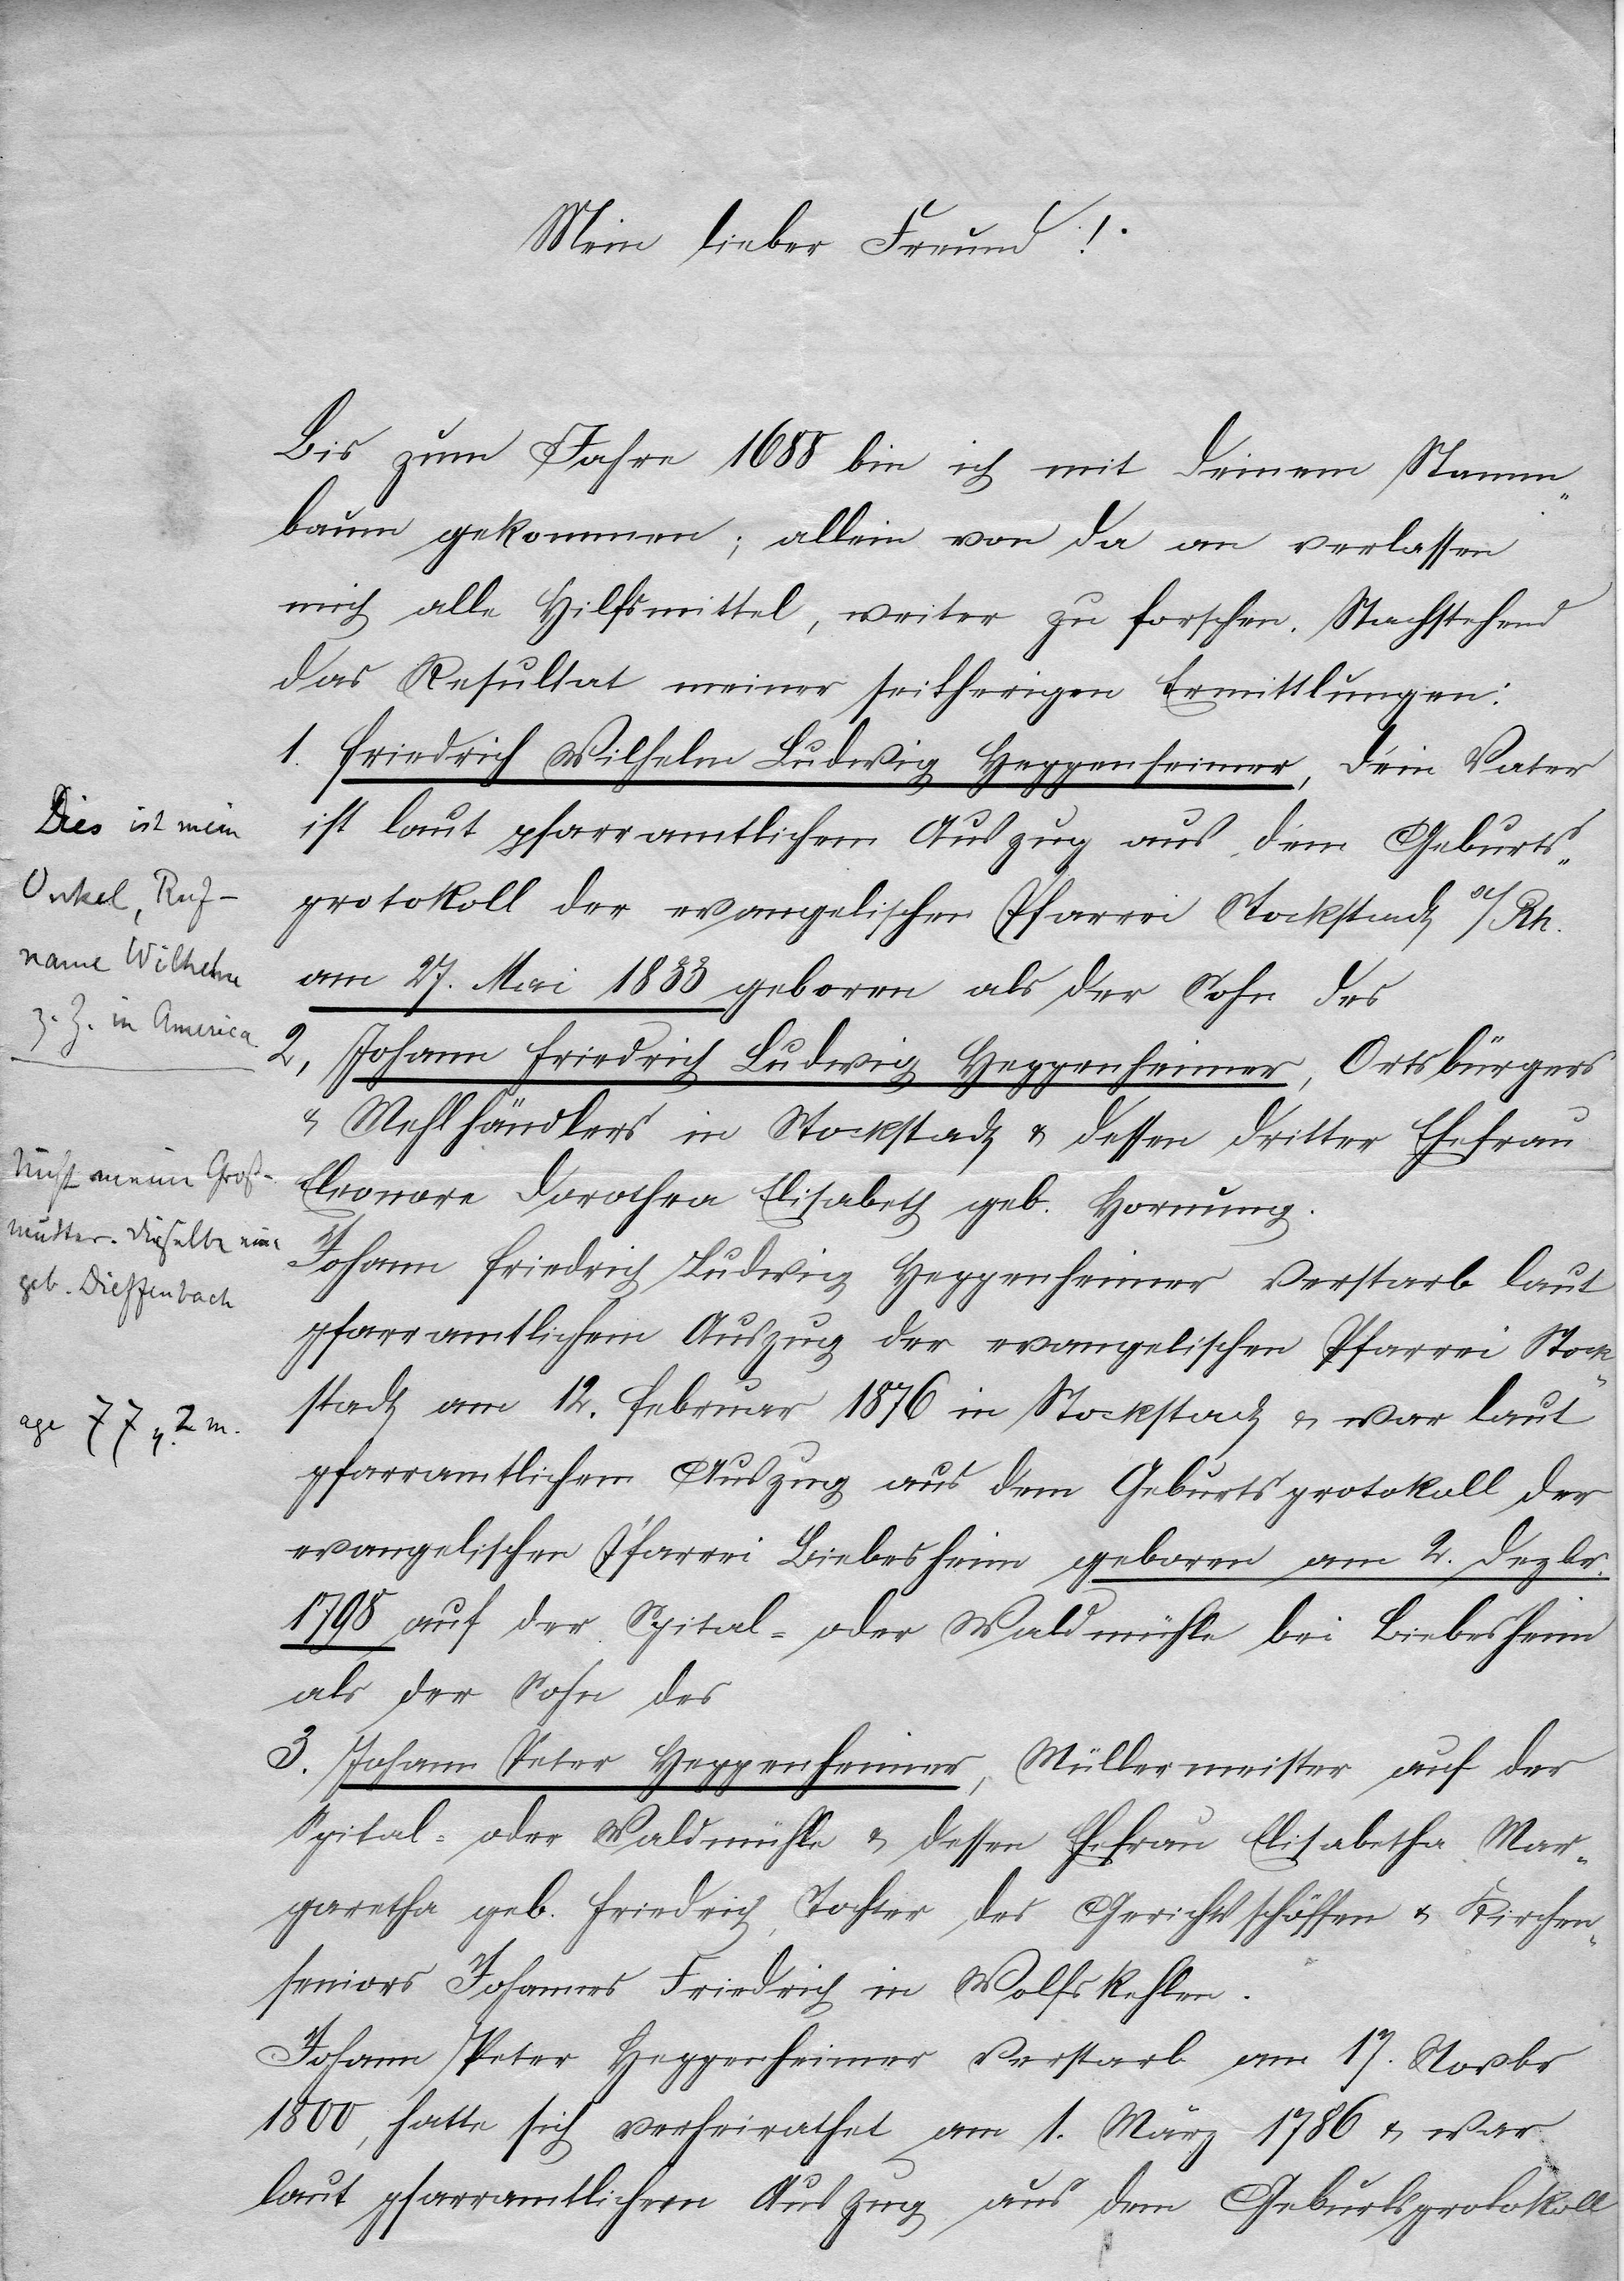 Mein lieber Freund!
Bis zum Jahre 1688 bin ich mit Deinem Stamm„
baum gekommen; allein von da an verlassen
mich alle Hilfsmittel, weiter zu forschen. Nachstehend
das Resultat meiner seitherigen Ermittlungen:
1. Friedrich Wilhelm Ludwig Heppenheimer, Dein Vater
ist laut pfarramtlichem Auszug aus dem Geburts„
protokoll der evangelischen Pfarrei Stockstadt a/Rh.
am 27. Mai 1833 geboren als der Sohn des
2, Johann Friedrich Ludwig Heppenheimer, Ortsbürgers
& Mehlhändlers in Stockstadt & dessen dritter Ehefrau
Eleonore Dorothea Elisabeth geb. Hornung.
Johann Friedrich Ludwig Heppenheimer verstarb laut
pfarramtlichem Auszug der evangelischen Pfarrei Stock„
stadt am 12. Februar 1876 in Stockstadt & war laut
pfarramtlichem Auszug aus dem Geburtsprotokoll der
evangelischen Pfarrei Biebesheim geboren am 2. Dezbr.
1798 auf der Spital- oder Waldmühle bei Biebesheim
als der Sohn des
3. Johann Peter Heppenheimer, Müllermeister auf der
Spital- oder Waldmühle & dessen Ehefrau Elisabetha Mar„
garetha geb. Friedrich, Tochter des Gerichtsschöffen & Kirchen„
seniors Johannes Friedrich in Wolfskehlen.
Johann Peter Heppenheimer verstarb am 17. Novbr
1800, hatte sich verheirathet am 1. März 1786 & war
laut pfarramtlichem Auszug aus dem Geburtsprotokoll
Dies ist mein
Onkel, Ruf-
name Wilhelm
z. Z. in America
Nicht meine Groß-
mutter. Dieselbe eine
geb. Dieffenbach
age 77 y. 2 m.